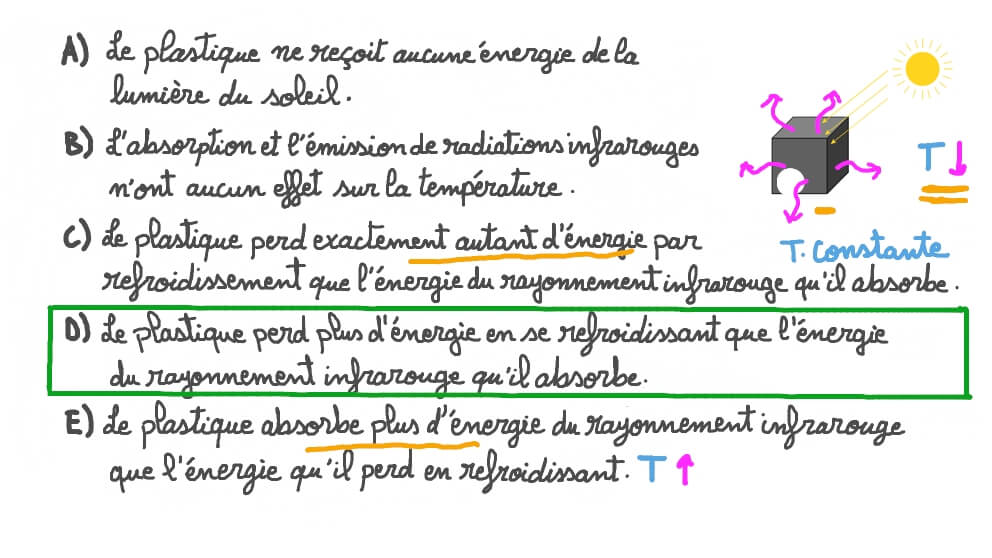 A) Le plastique ne reçoit aucune énergie de la
lumière du soleil.
B) L'absorption et l'émission de radiations infrarouges
n'ont aucun effet sur la température.
T
C) Le plastique perd exactement autant d'énergie par
T. Constante
refroidissement que l'énergie du rayonnement infrarouge qu'il absorbe.
D) Le plastique perd plus d'énergie en se refroidissant que l'énergie
du rayonnement infrarouge qu'il absorbe.
E) Le plastique absorbe plus d'énergie du rayonnement infrarouge
que l'énergie qu'il perd en refroidissant. T